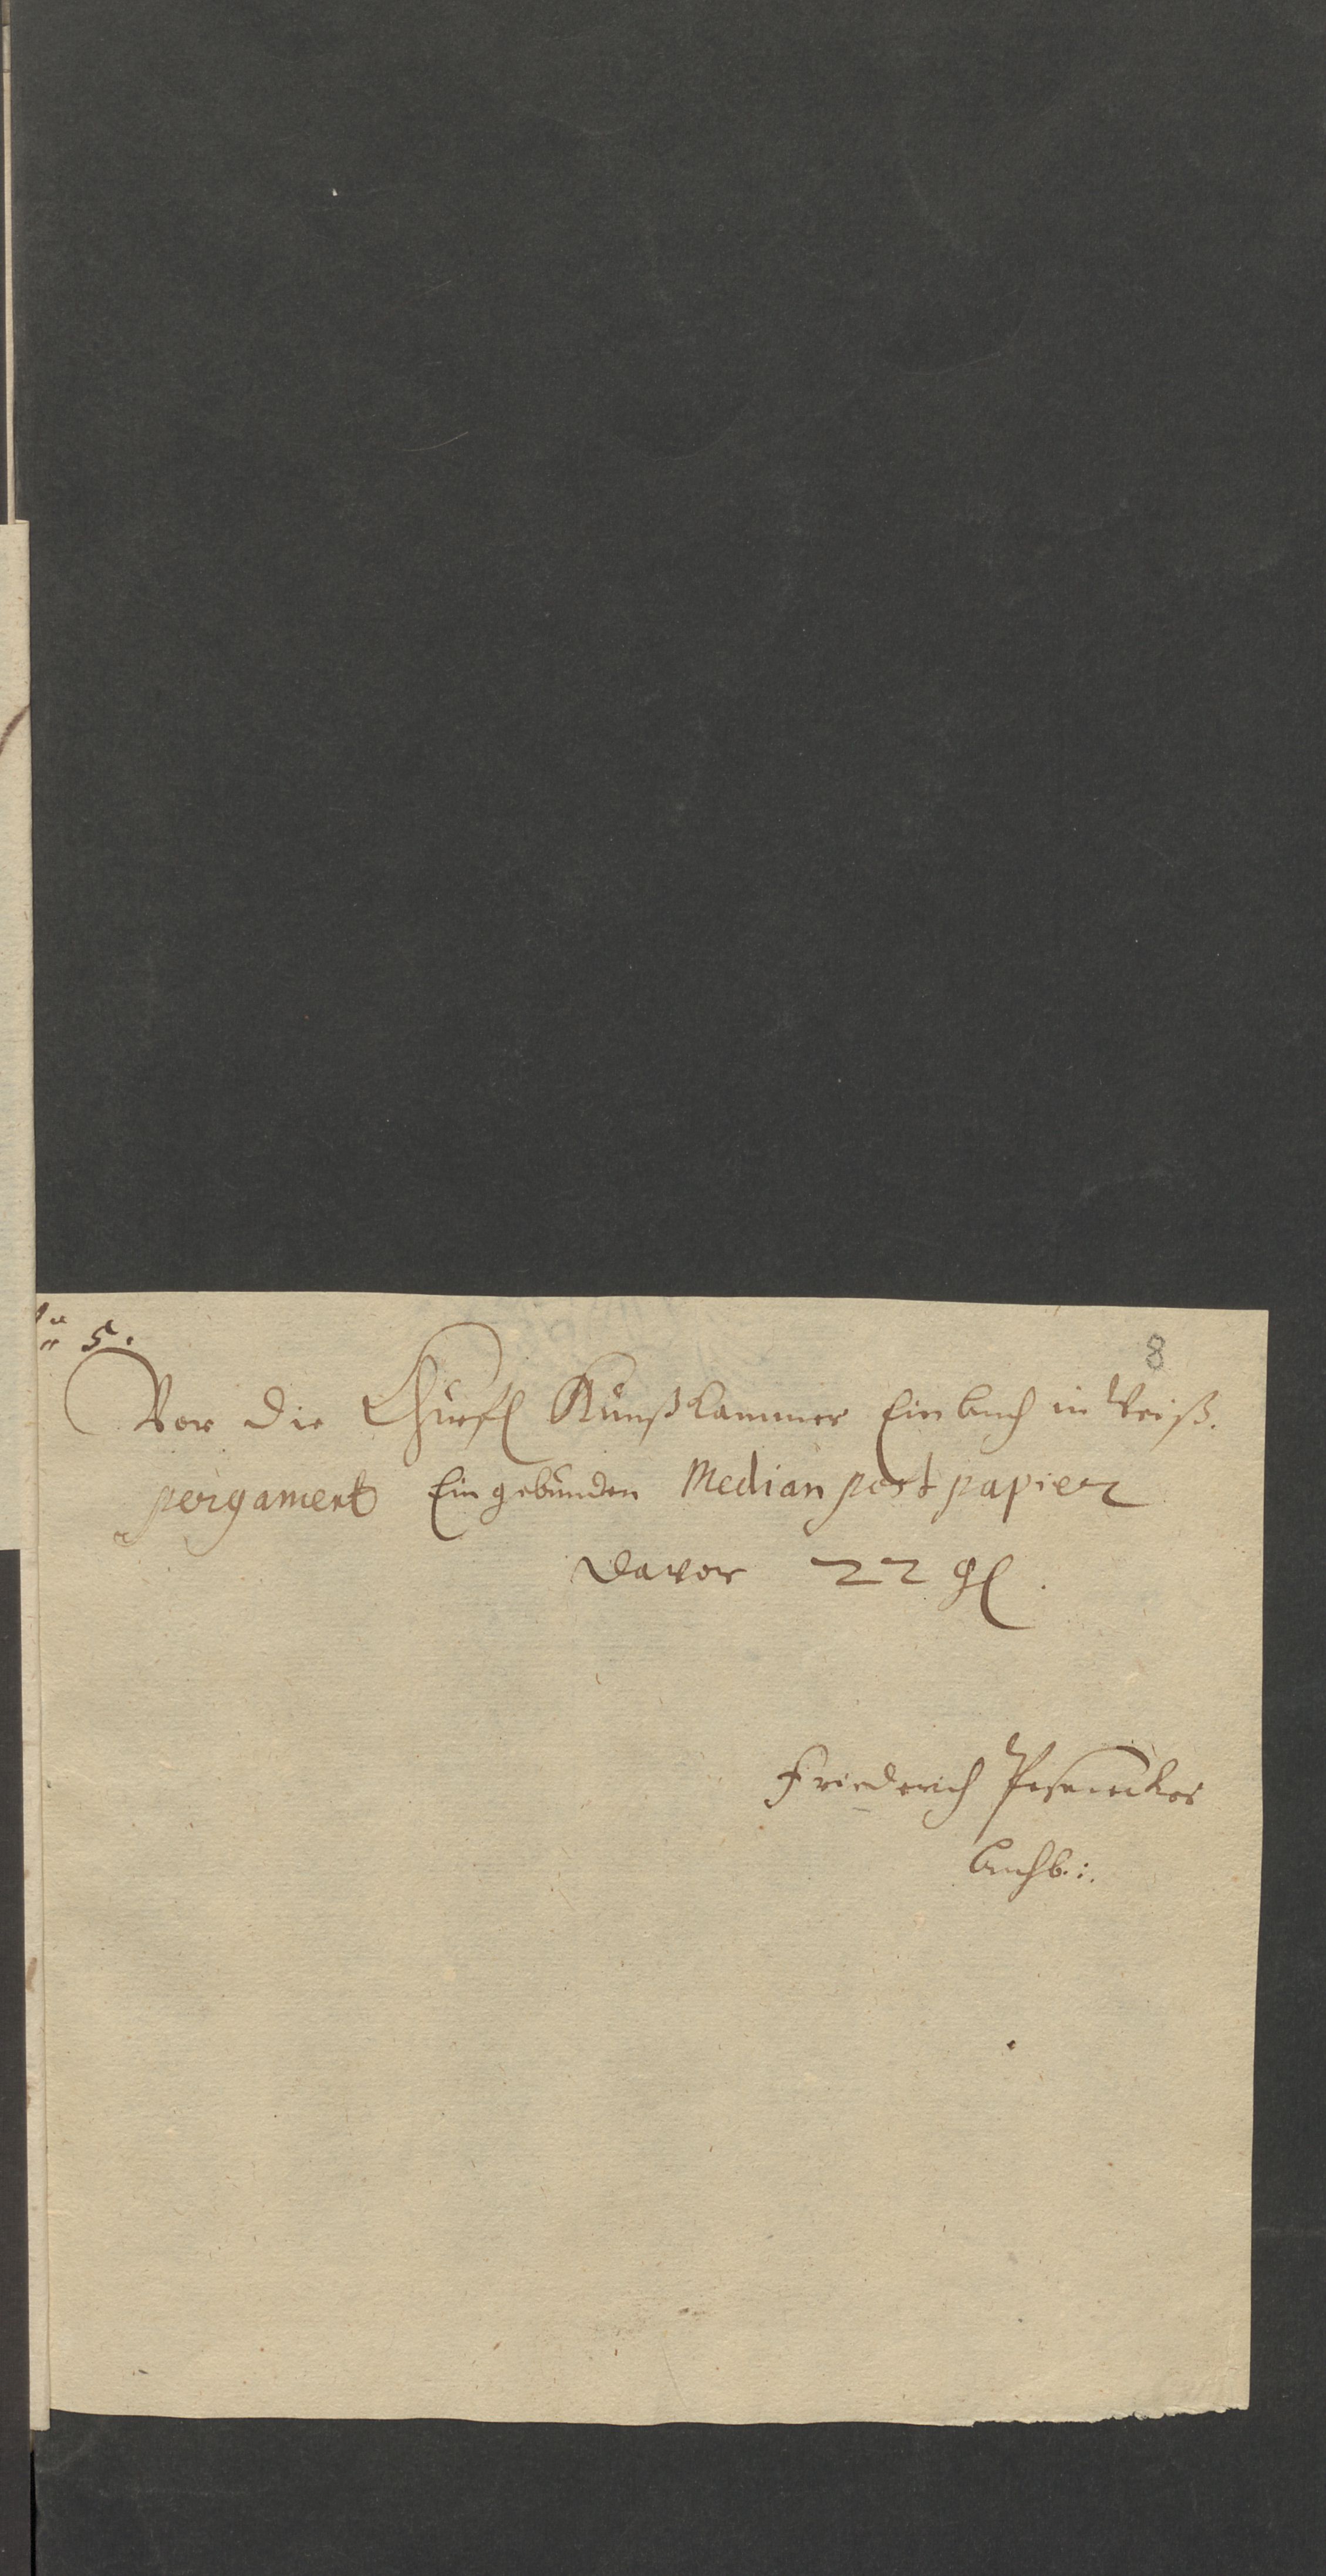 5.
8
Vor die Churfl Kunstkammer Ein buch in Weiß.
pergament Ein gebunden Median post papier
davor 22 gl.
Friederich
buchb:.